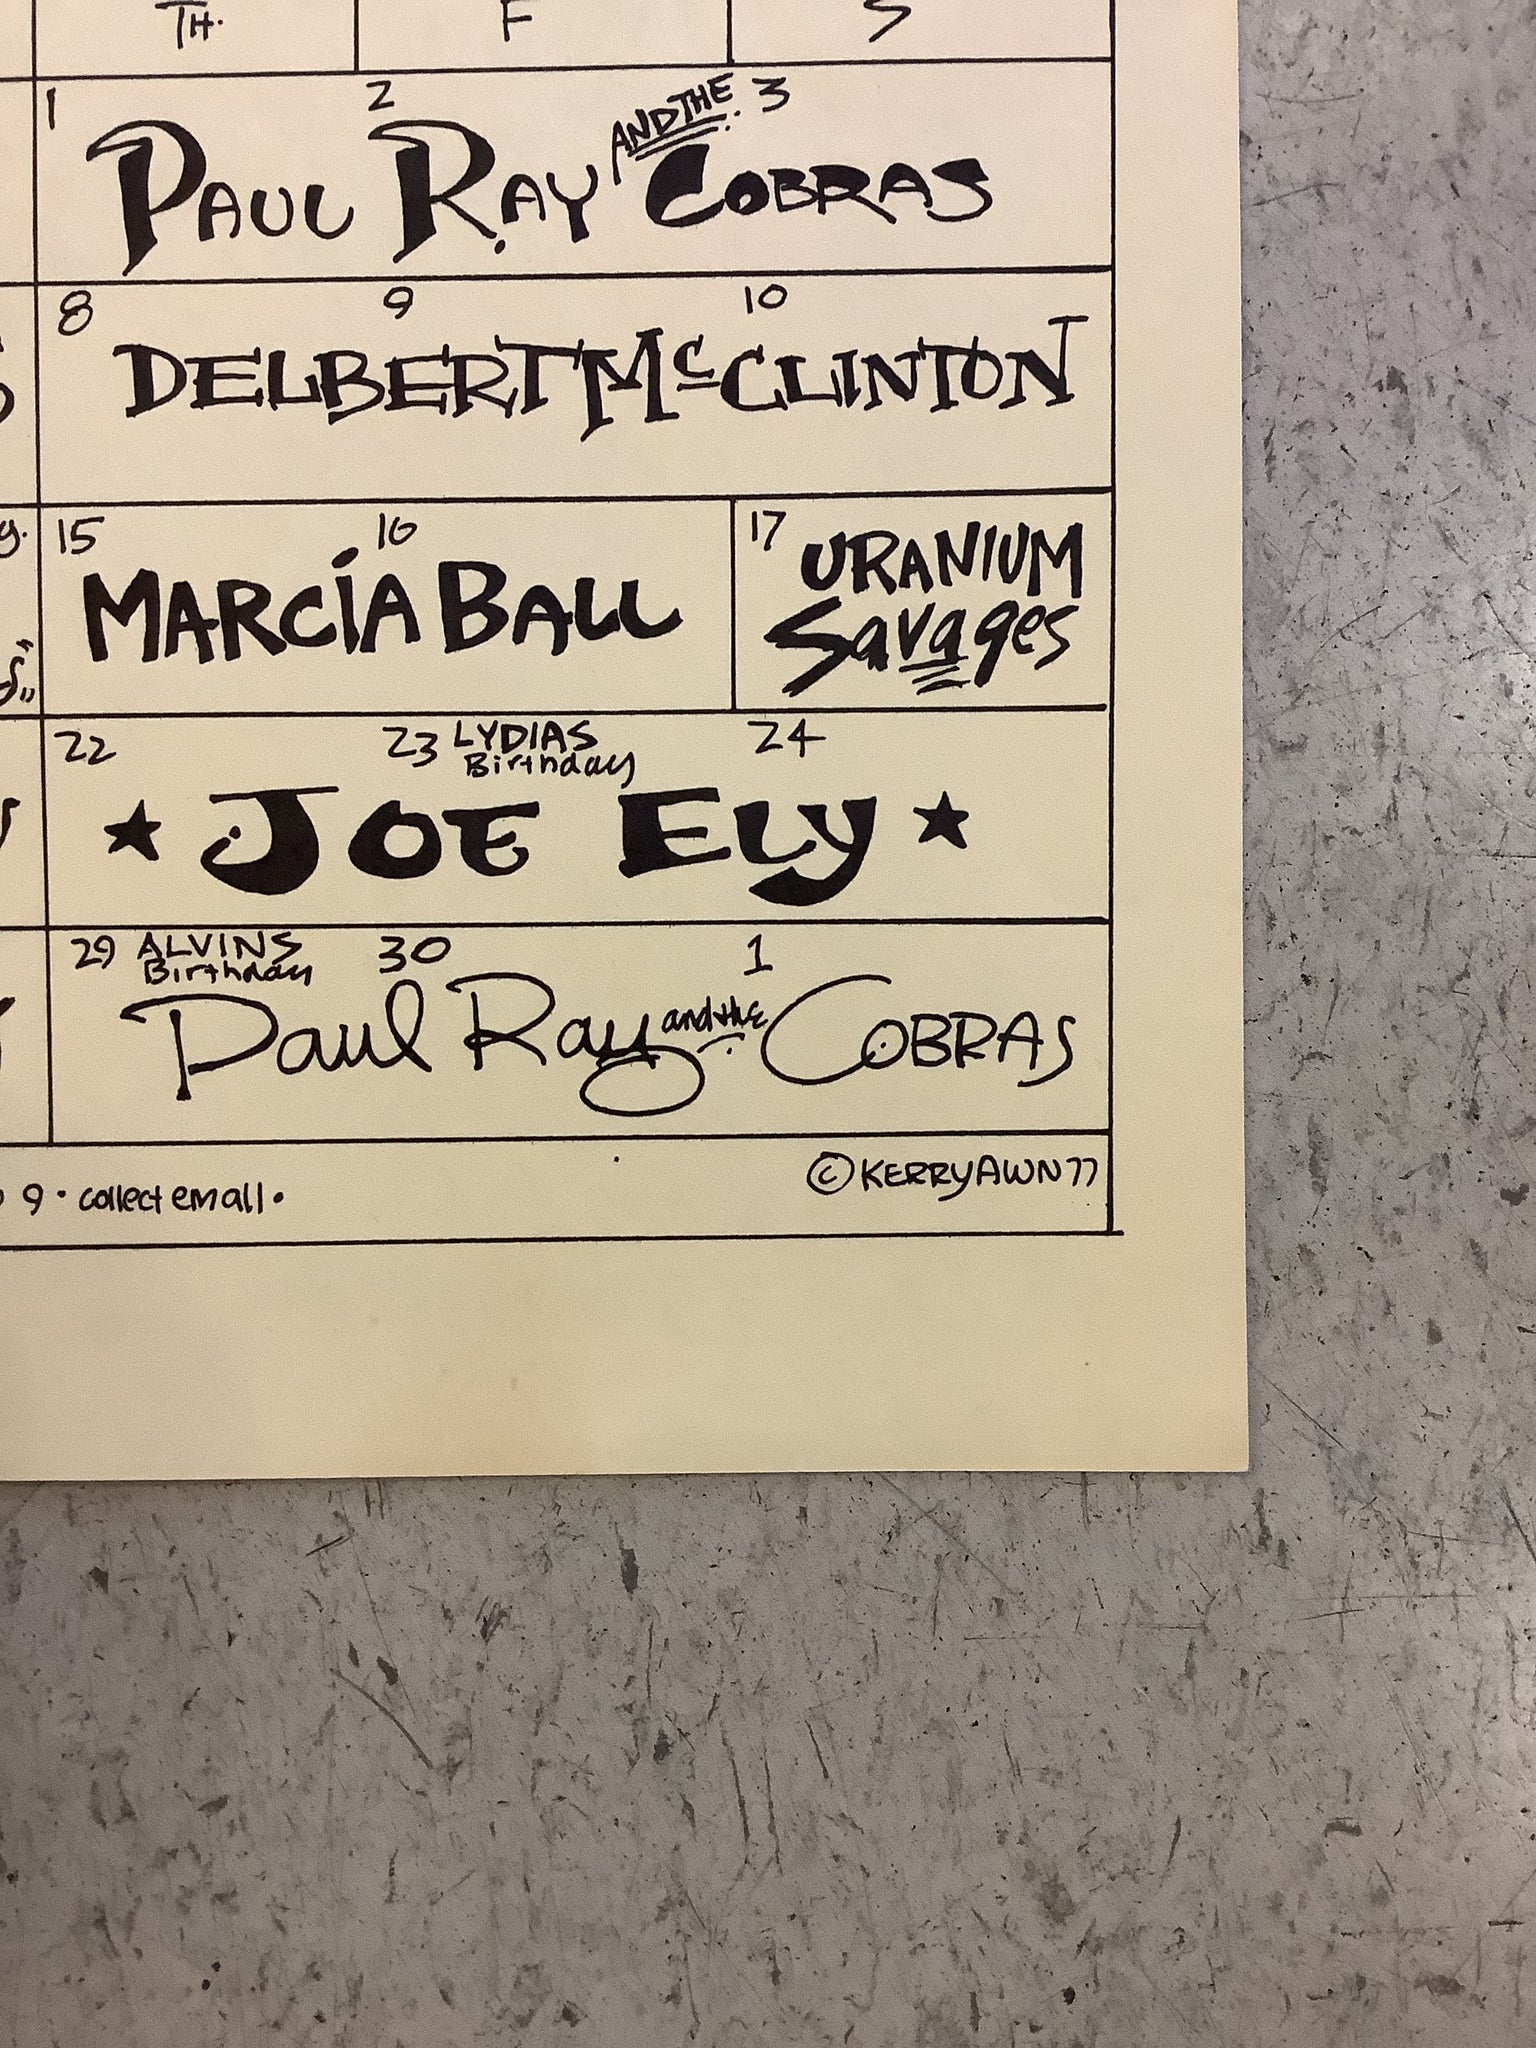 TH. F S
1 2 3
PAUL RAY AND THE COBRAS
8 9 10
DELBERT McCLINTON
15 16 17
MARCIA BALL
URANIUM
Savages
22 23 LYDIAS 24
Birthday
★ JOE ELY ★
29 ALVINS 30 1
Birthday
Paul Ray and the COBRAS
9 • collect em all •
© KERRY AWN 77